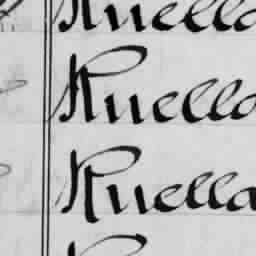 Ruella
Ruella
Ruella